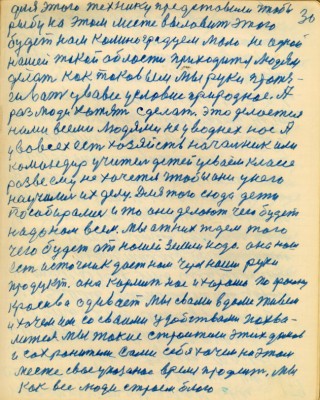 для этого технику представили чтобы
рыбу на этом месте вылавит этого
будет нам Калиноградцем мало не одной
30
нашей такой области приходится людям
делать как таковым мы руки протя-
гивать у вас условие природное. А
раз люди хотят сделать. это делается
ними всеми людями не у водных нас А
у вовсех есть хозяйств началник или
командир учител детей у своем классе
разве ему не хочется чтобы они у него
научились их делу Для того сюда дети
собирались и то они делают чего будет
надо нам всем. Мы от них ждем того
чего будет от нашей Земли когда она нам
ест источник дает нам Чем наши руки
продукт. она кормит нас и хорошо по
красиво одевает Мы с вами в доме живем
и хочем им со своими удобствами похва-
лится Мы такие строители этих домов
и сохранители Сами себя хочем на этом
месте свое указаное время продлит. Мы
как все люди строем благо -